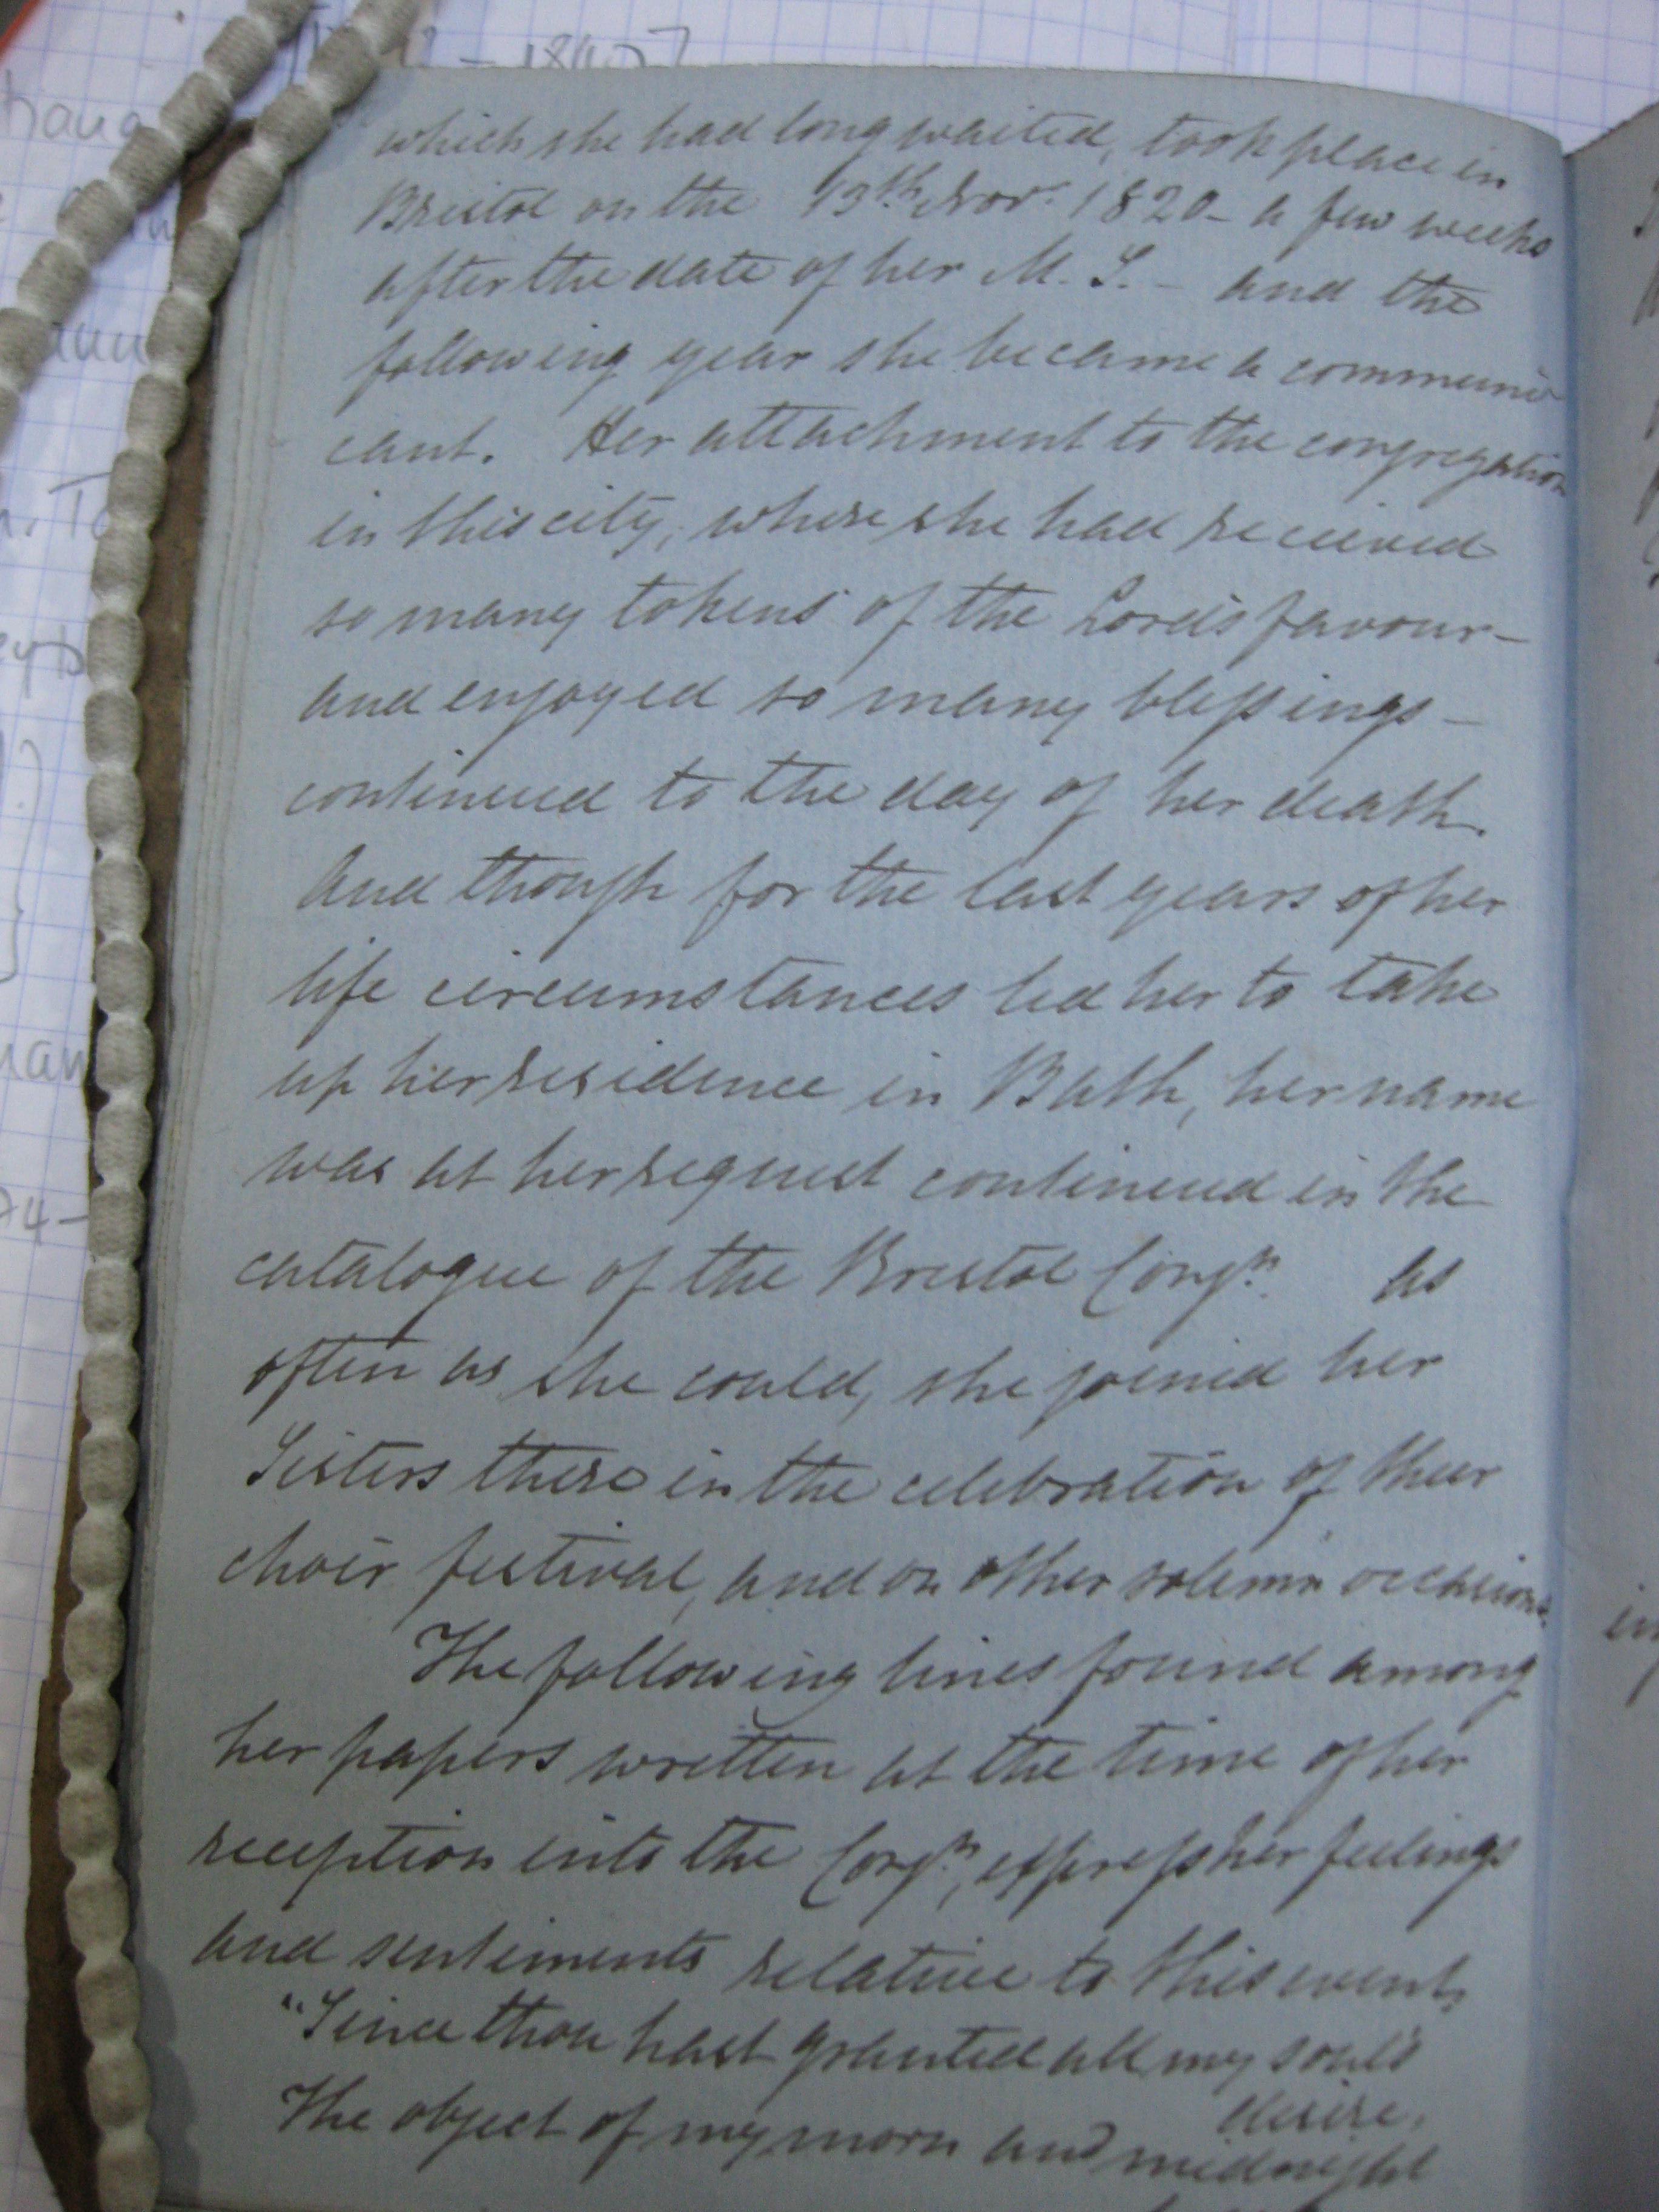 which she had long waited, took place in
Bristol on the 13th Novr. 1820 – a few weeks
after the date of her M. S. – and the
following year she became a communi
cant. Her attachment to the congregation
in this city, where she had received
so many tokens of the Lord's favour –
and enjoyed so many blessings –
continued to the day of her death.
And though for the last years of her
life circumstances led her to take
up her residence in Bath, her name
was at her request continued in the
catalogue of the Bristol Congn. As
often as she could, she joined her
Sisters there in the celebration of their
choir festival, and on other solemn occasions.
The following lines found among
her papers written at the time of her
reception into the Congn, express her feelings
and sentiments relative to this event,
"Since thou hast granted all my soul's
desire,
The object of my morn and midnight